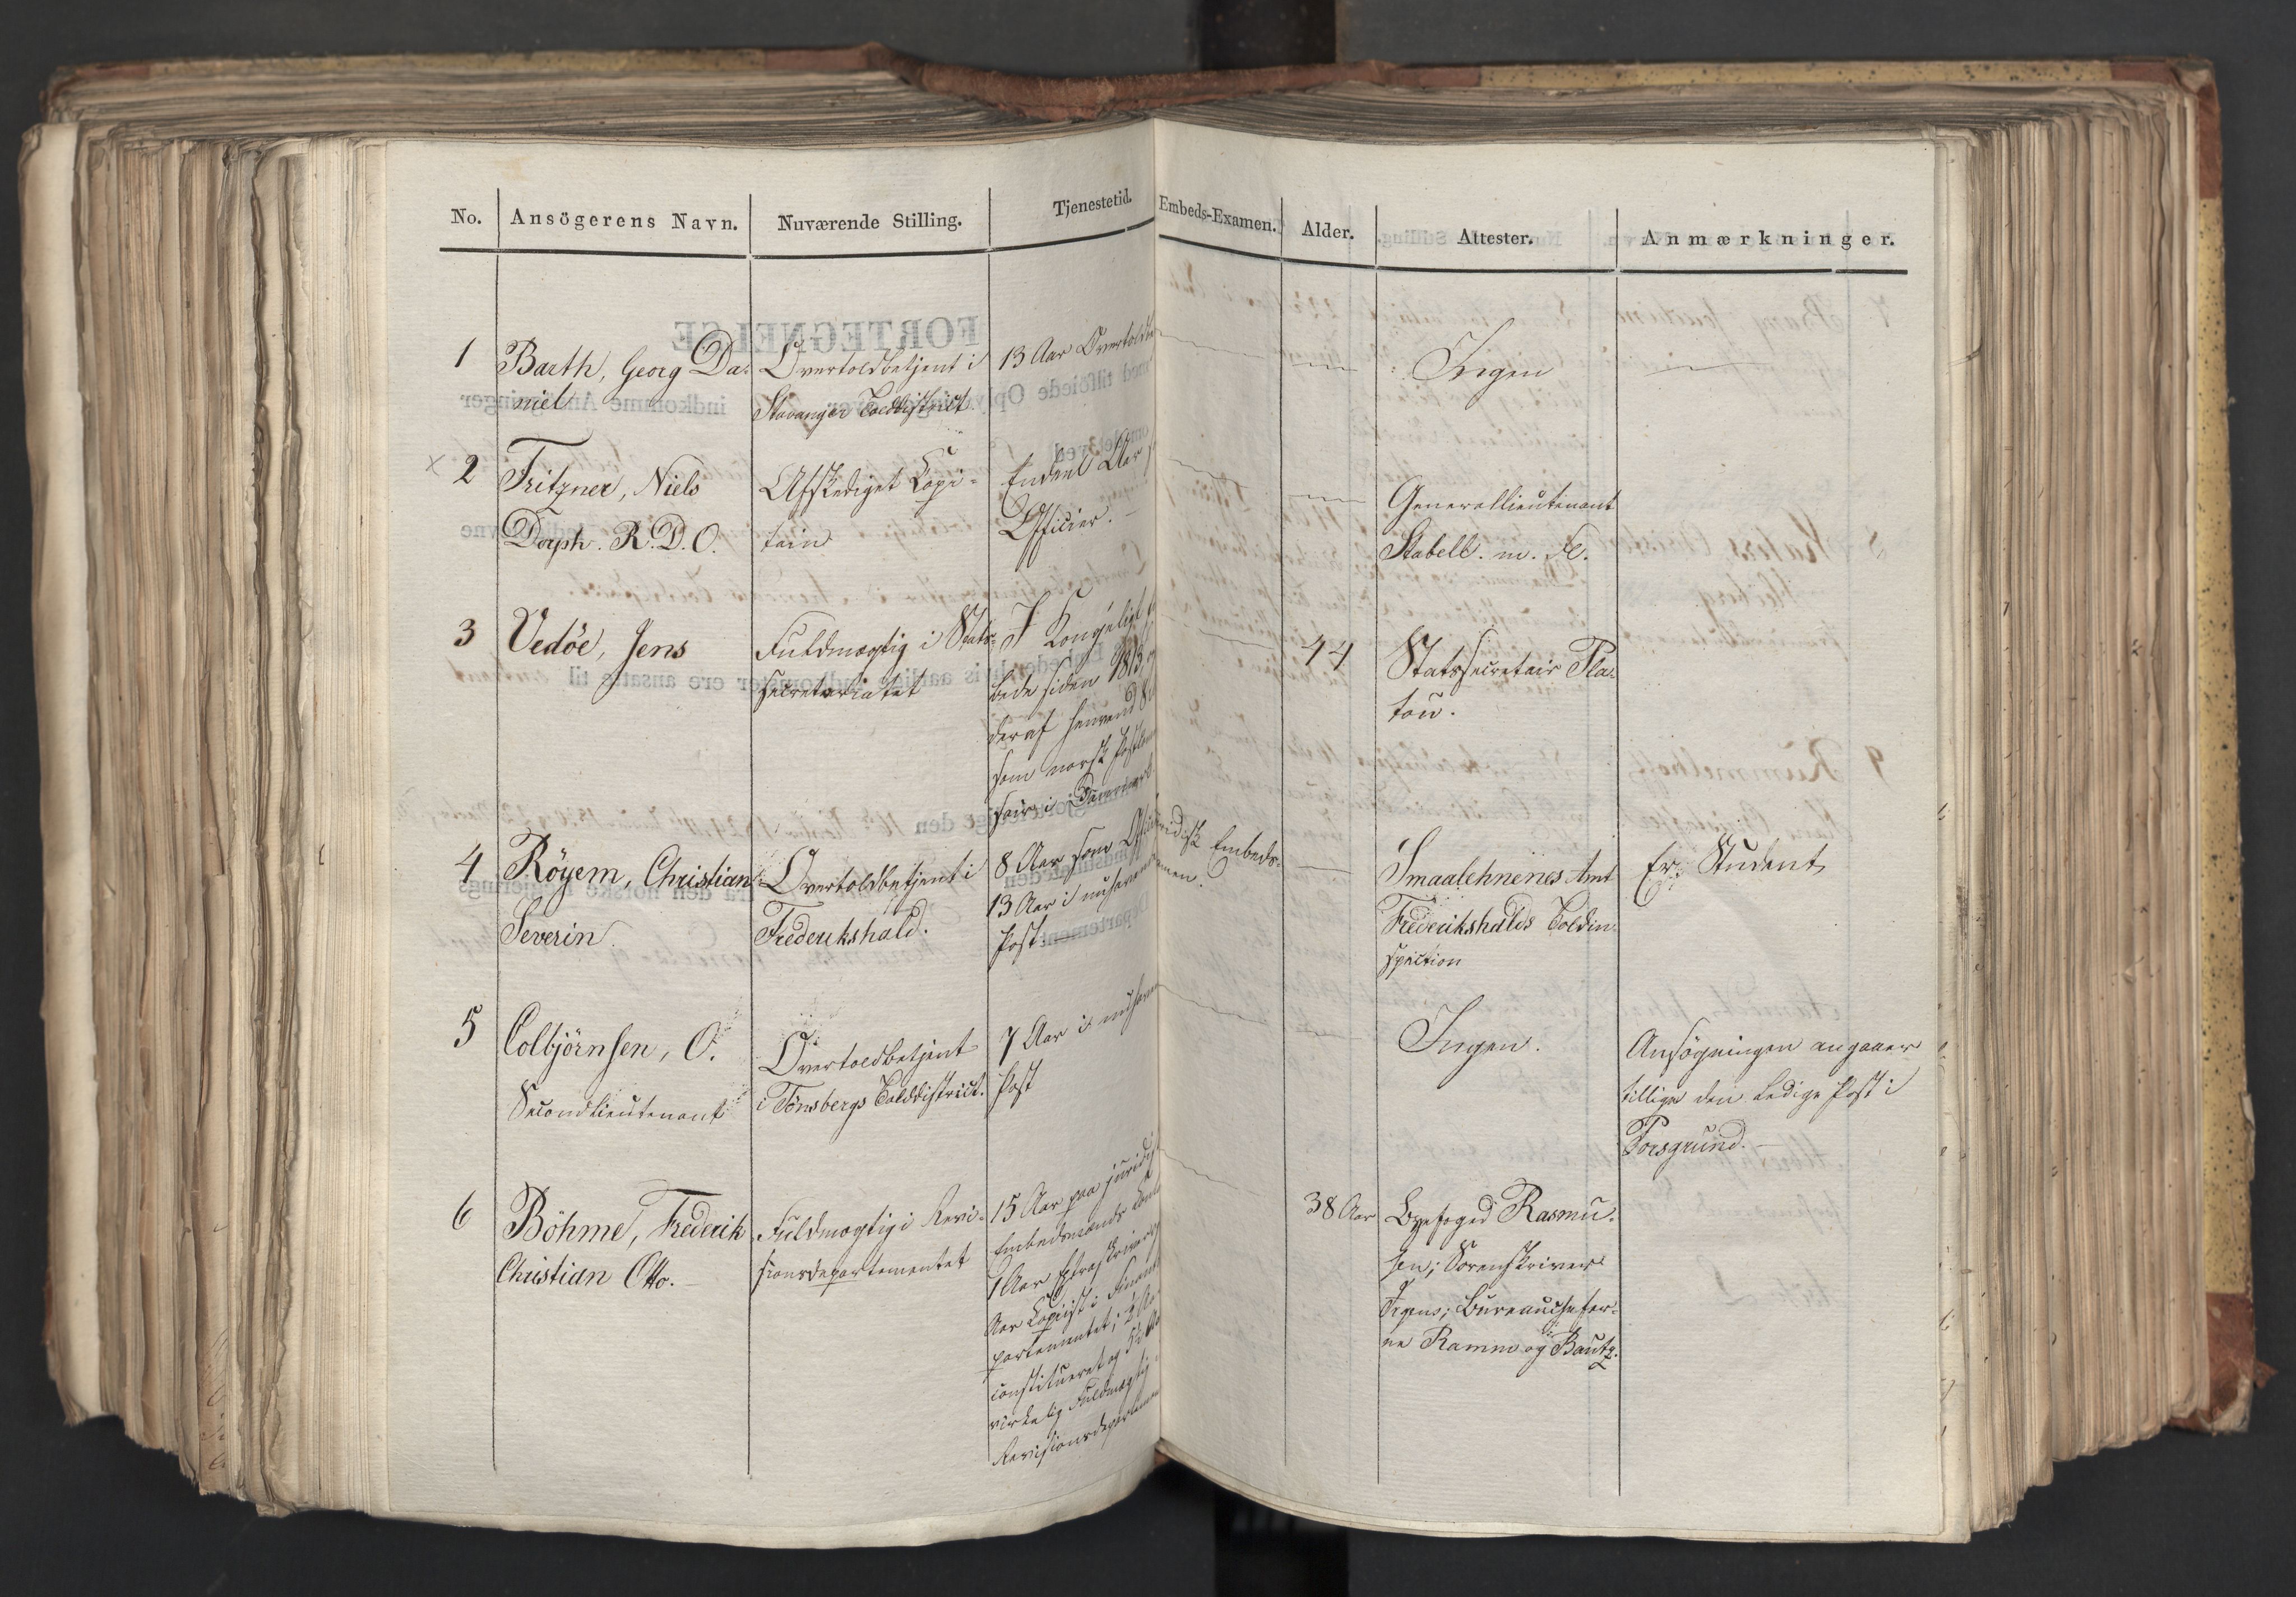 No. Ansögerens Navn. Nuværende Stilling. Tjenestetid. Embeds-Examen. Alder. Attester. Anmærkninger.
1 Barth, Georg Da-
niel
Overtoldbetjent i
Stavanger Tolddistrict
13 Aar Overtoldbe
Ingen
× 2 Fritzner, Niels
Dorph. R. D. O.
Afskediget Capi-
tain
Endeel Aar
Officier.
Generallieutenant
Stabell. m. Fl.
3 Vedöe, Jens
Fuldmægtig i Stats-
secretariatet
I Kongeligt
siden 1813
deraf henved 8
som norsk
i Danmark
44
Statssecretair Pla-
tou.
4 Röyem, Christian
Severin
Overtoldbetjent i
Frederikshald.
8 Aar som
13 Aar i nuhavende
Post
juridisk Embeds-
examen.
Smaalehnenes Amt
Frederikshalds Toldin-
spection
Er Student
5 Colbjörnsen, O.
Secondlieutenant
Overtoldbetjent
i Tönsbergs Tolddistrict.
7 Aar i nuhavende
Post
Ingen.
Ansögningen angaaer
tillige den ledige Post i
Porsgrund.
6 Böhme, Frederik
Christian Otto.
Fuldmægtig i Revi-
sionsdepartementet
15 Aar paa juridisk
Embedsmands
1 Aar Extraskriver
Aar Copiist i Finants
partementet; 2 Aar
constitueret og 5½ Aar
virkelig Fuldmægtig
Revisionsdepartement
38 Aar
Byefoged Rasmu-
sen; Sorenskriver
Irgens; Bureauchefer-
ne Ramm og Bautz.